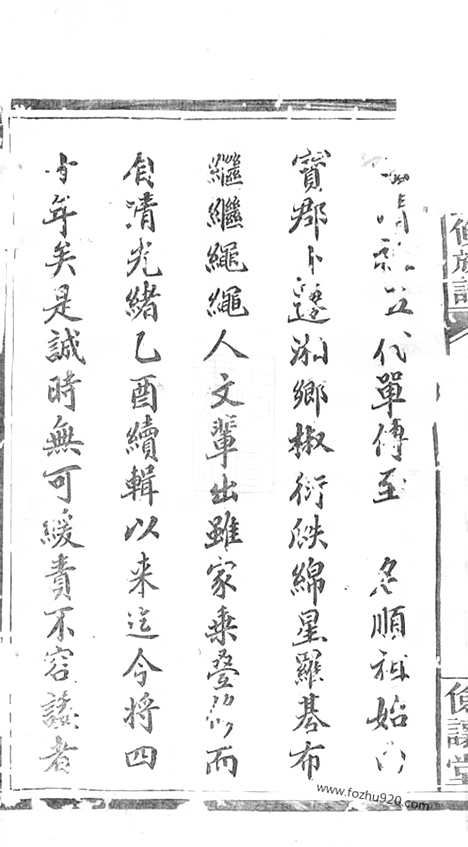 五代單傳至 順祖始
寶郡卜遷湘鄉椒衍瓞綿星羅棊布
繼繼繩繩人文輩出雖家乘疊修而
自清光緒乙酉續輯以来迄今將四
十年矣是誠時無可緩責不容諉者
族譜
讓堂
www.fozhu920.com